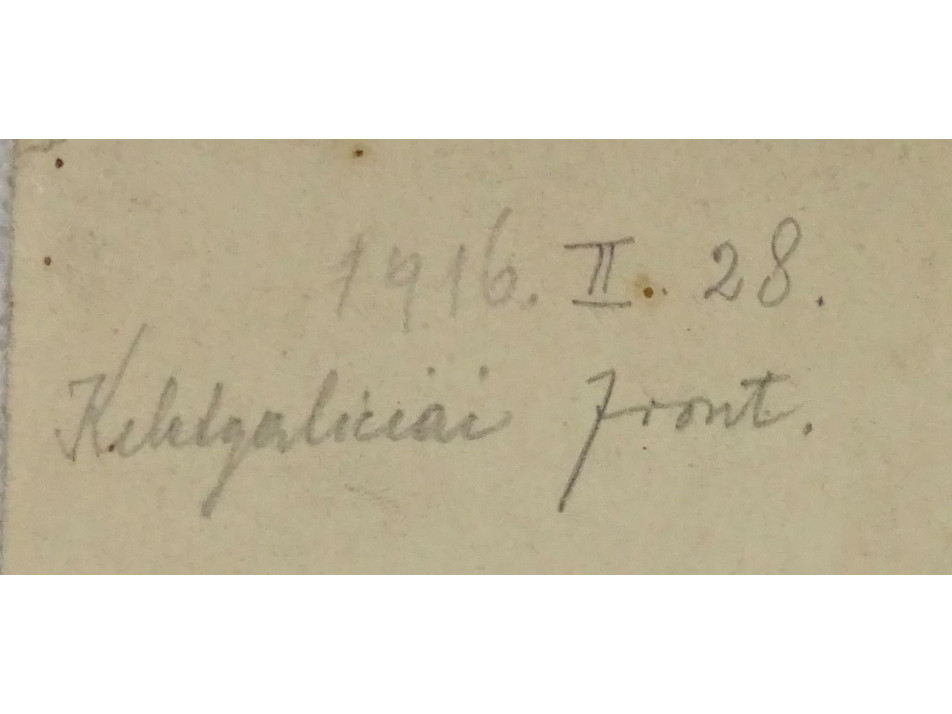 1916. II. 28.
Keletgaliciai front.